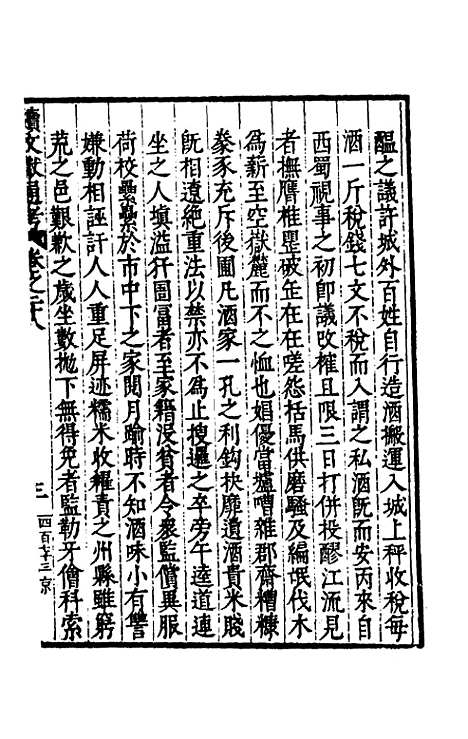 醖之議許城外百姓自行造酒搬運入城上秤收稅每
酒一斤稅錢七文不稅而入謂之私酒既而安丙來自
西蜀視事之初卽議改榷且限三日打併投醪江流見
者撫膺椎罌破缶在在嗟怨括馬供磨騷及編氓伐木
爲薪至空嶽麓而不之恤也娼優當壚嘈雜郡齋糟糠
豢豕充斥後圃凡酒家一孔之利鈎抉靡遺酒貴米賤
旣相遠絶重法以禁亦不爲止搜邏之卒旁午逵道連
坐之人塡溢犴圄富者至家籍没貧者令衆監償異服
荷校纍纍於市中下之家閱月踰時不知酒味小有讐
嫌動相誣訐人人重足屏迹糯米收糴責之州縣雖窮
荒之邑艱歉之歲坐數抛下無得免者監勒牙儈科索
續文獻通考 卷之二十八
三